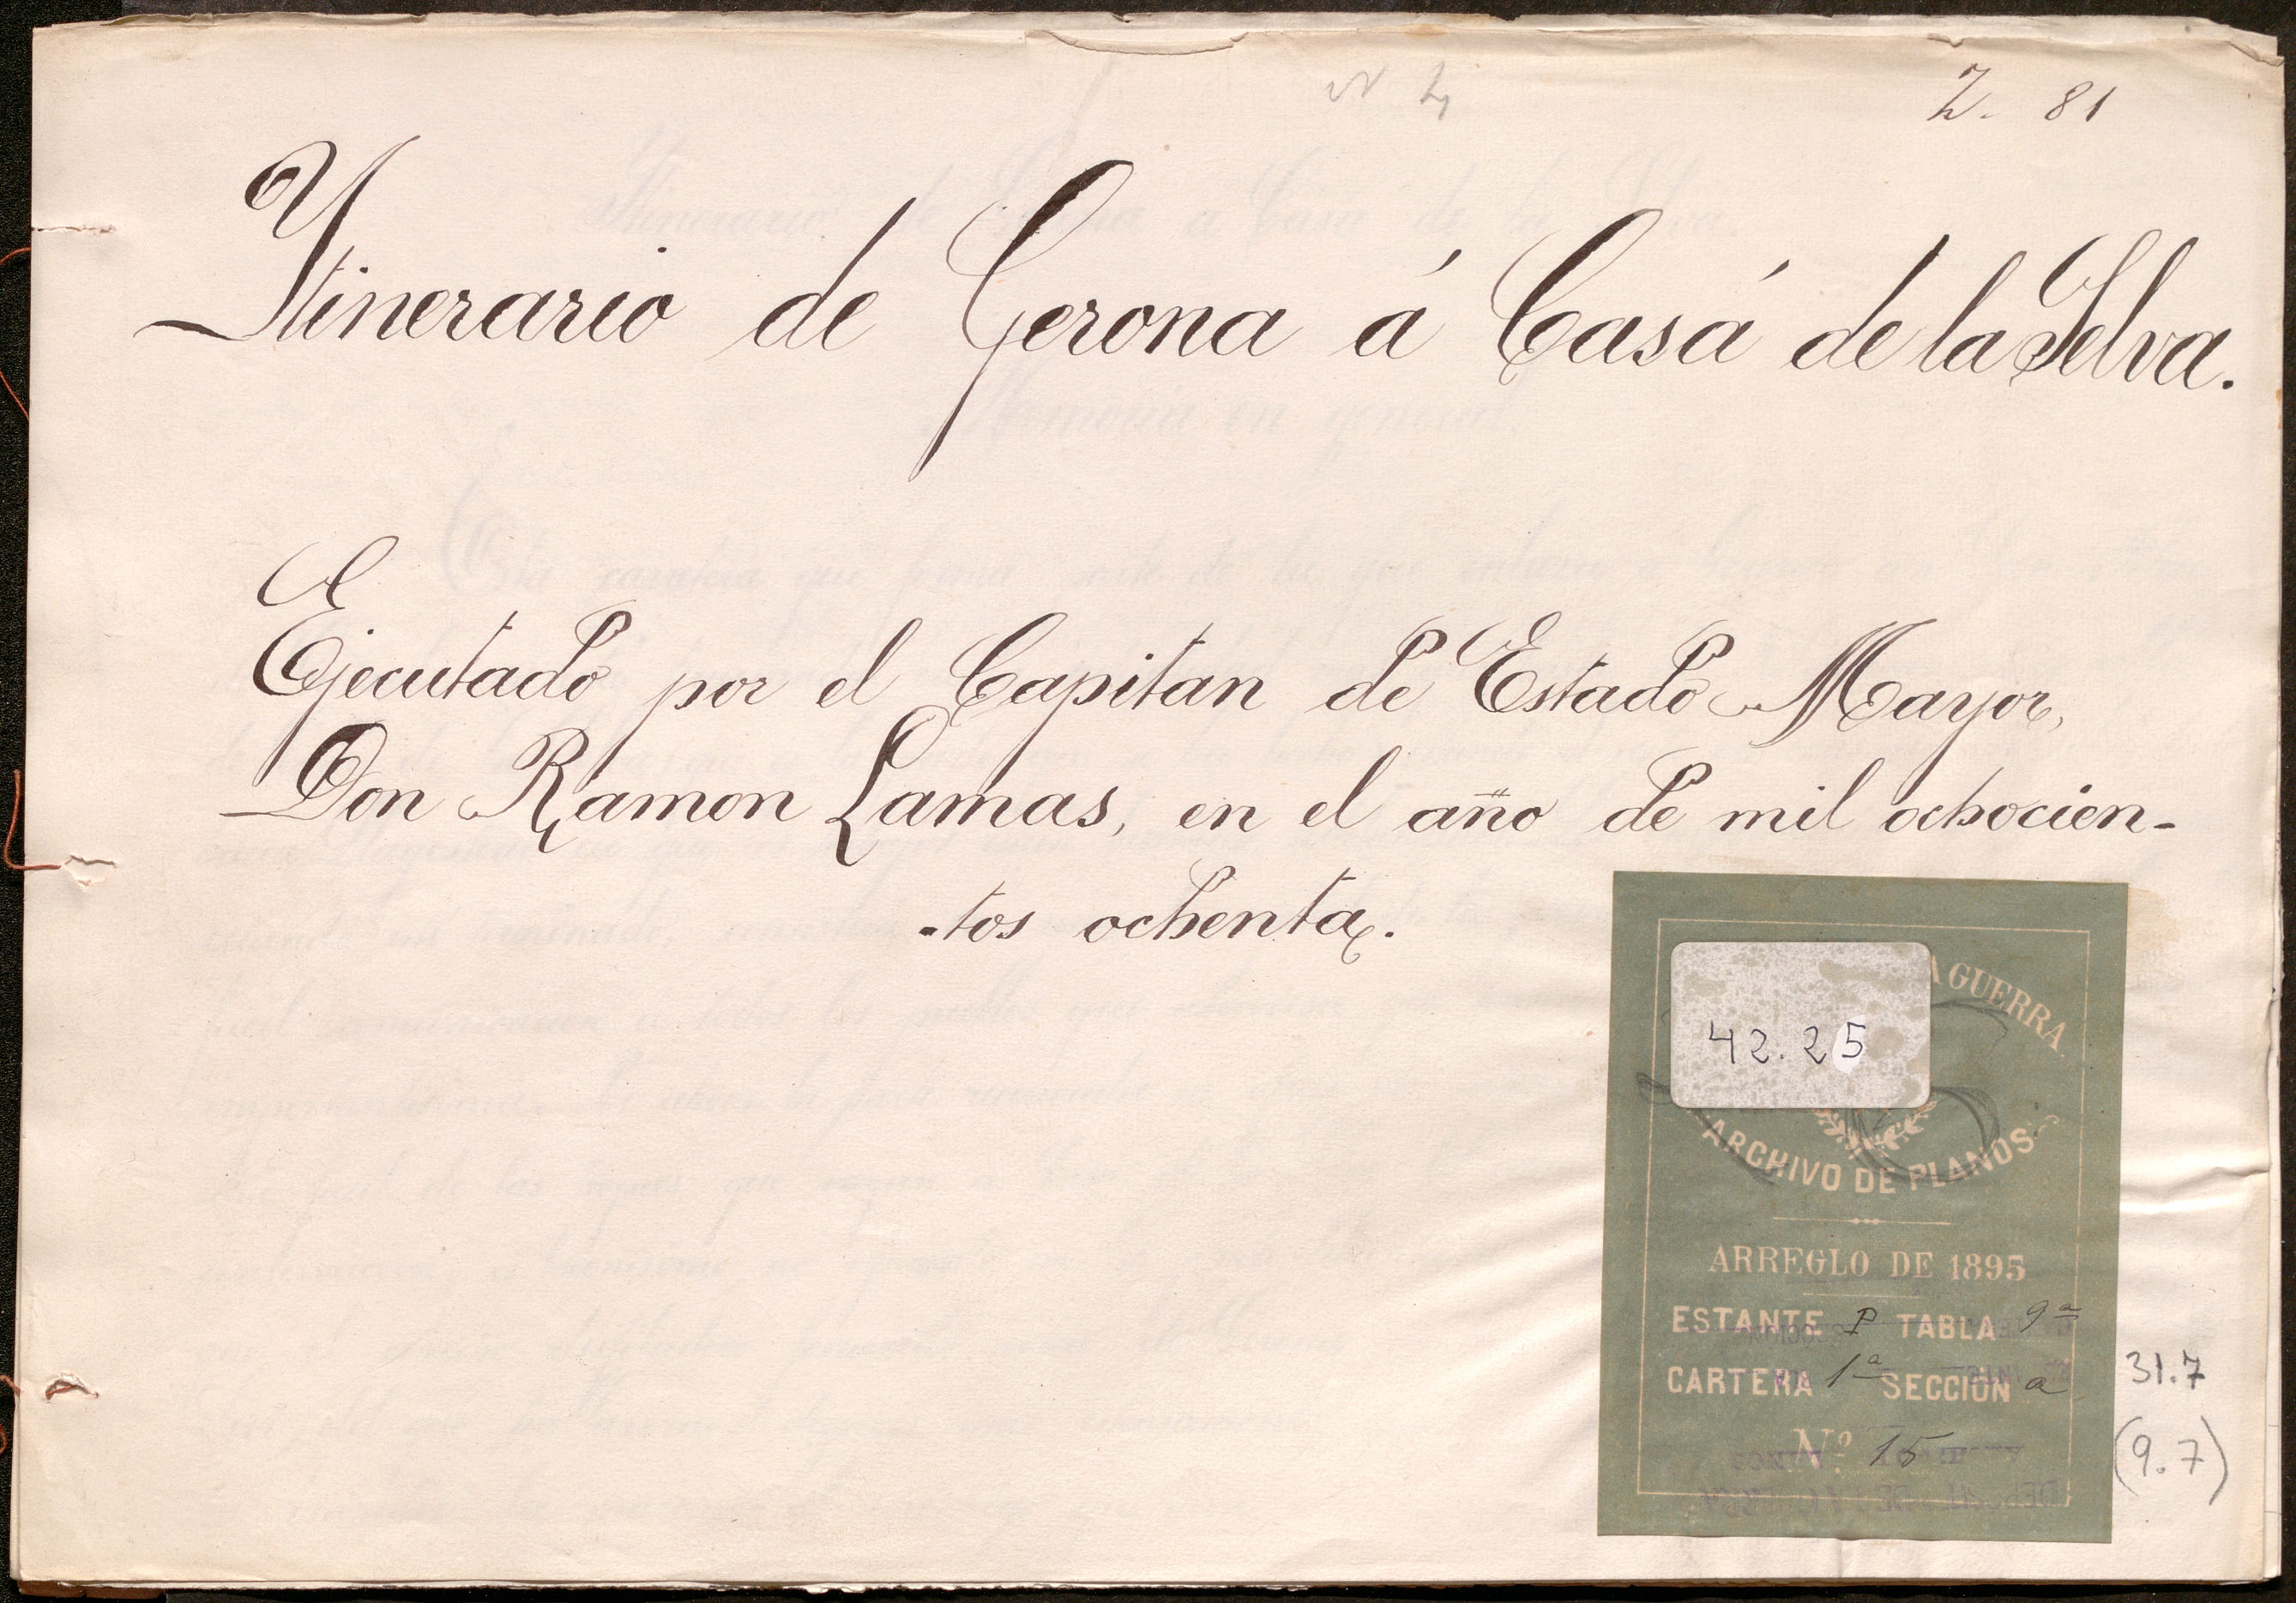 Z. 81
Ytinerario de Gerona á Casá de la Selva.
Ejecutado por el Capitan de Estado Mayor,
Don Ramon Lamas, en el año de mil ochocien-
-tos ochenta.
A GUERRA
42.25
ARCHIVO DE PLANOS
ARREGLO DE 1895
ESTANTE P TABLA 9ª
CARTERA 1ª SECCIÓN a
Nº 15
31.7
(9.7)